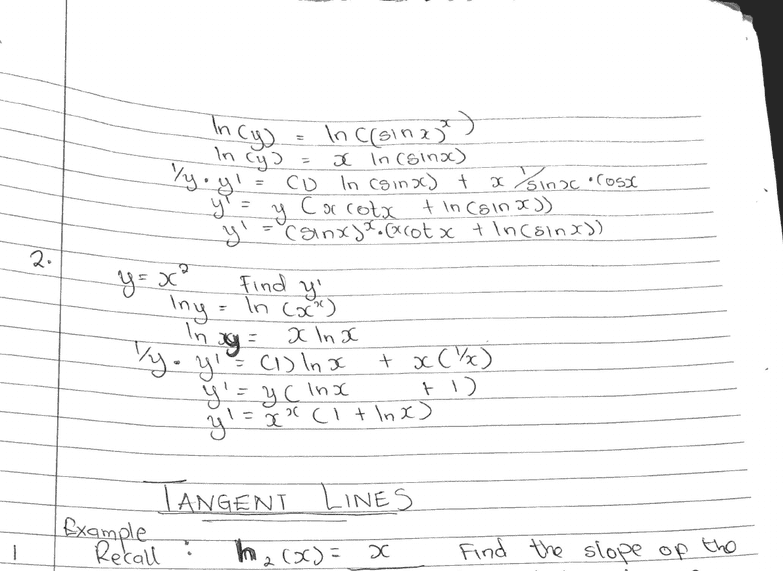 ln(y) = ln((sin x)^x)
ln(y) = x ln(sinx)
1/y · y' = (1) ln(sinx) + x 1/sinx · cosx
y' = y (x cotx + ln(sinx))
y' = (sinx)^x · (x cot x + ln(sinx))
2.
y = x^x Find y'
ln y = ln (x^x)
ln y = x ln x
1/y · y' = (1) ln x + x (1/x)
y' = y ( ln x + 1)
y' = x^x (1 + ln x)
TANGENT LINES
Example
1 Recall : h_2(x) = x Find the slope of the